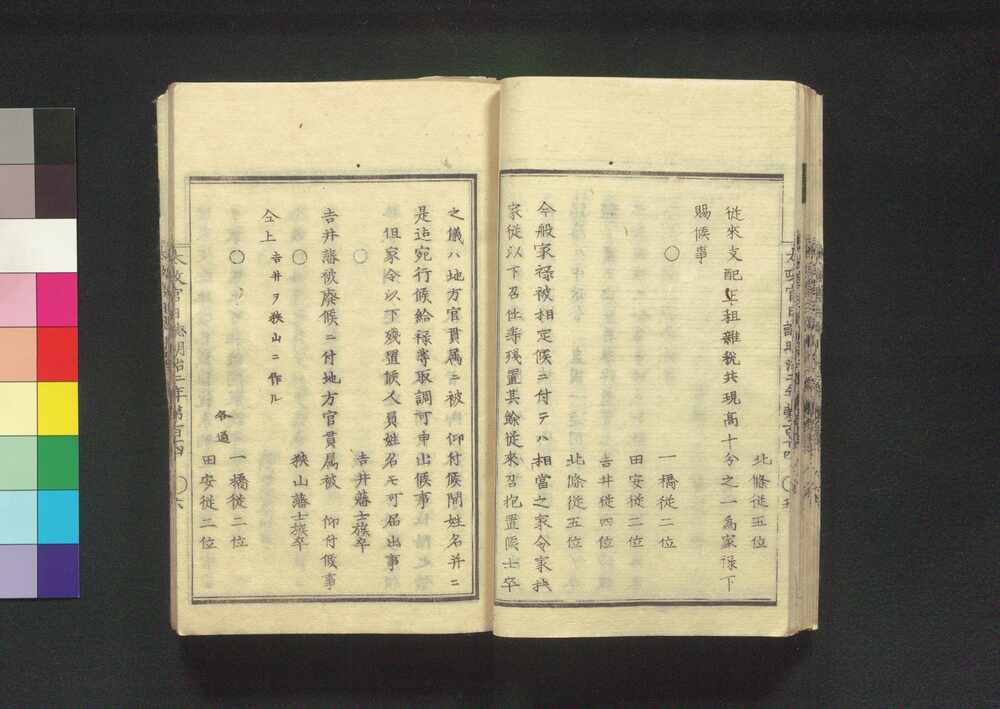 北條從五位
從來支配正租雜税共現髙十分之一爲家禄下
賜候事
○
一橋從二位
田安從二位
吉井從四位
北條從五位
今般家禄被相定候ニ付テハ相當之家令家扶
家從以下召仕等殘置其餘從來召抱置候士卒
之儀ハ地方官貫属ニ被 仰付候間姓名并ニ
是迄宛行候給禄等取調可申出候事
但家令以下殘置候人員姓名モ可届出事
○
吉井藩士族卒
吉井藩被廢候ニ付地方官貫属被 仰付候事
○
狹山藩士族卒
仝上 吉井ヲ狹山ニ作ル
○
各通
一橋從二位
田安從二位
太政官日誌明治二年第百四 ○六